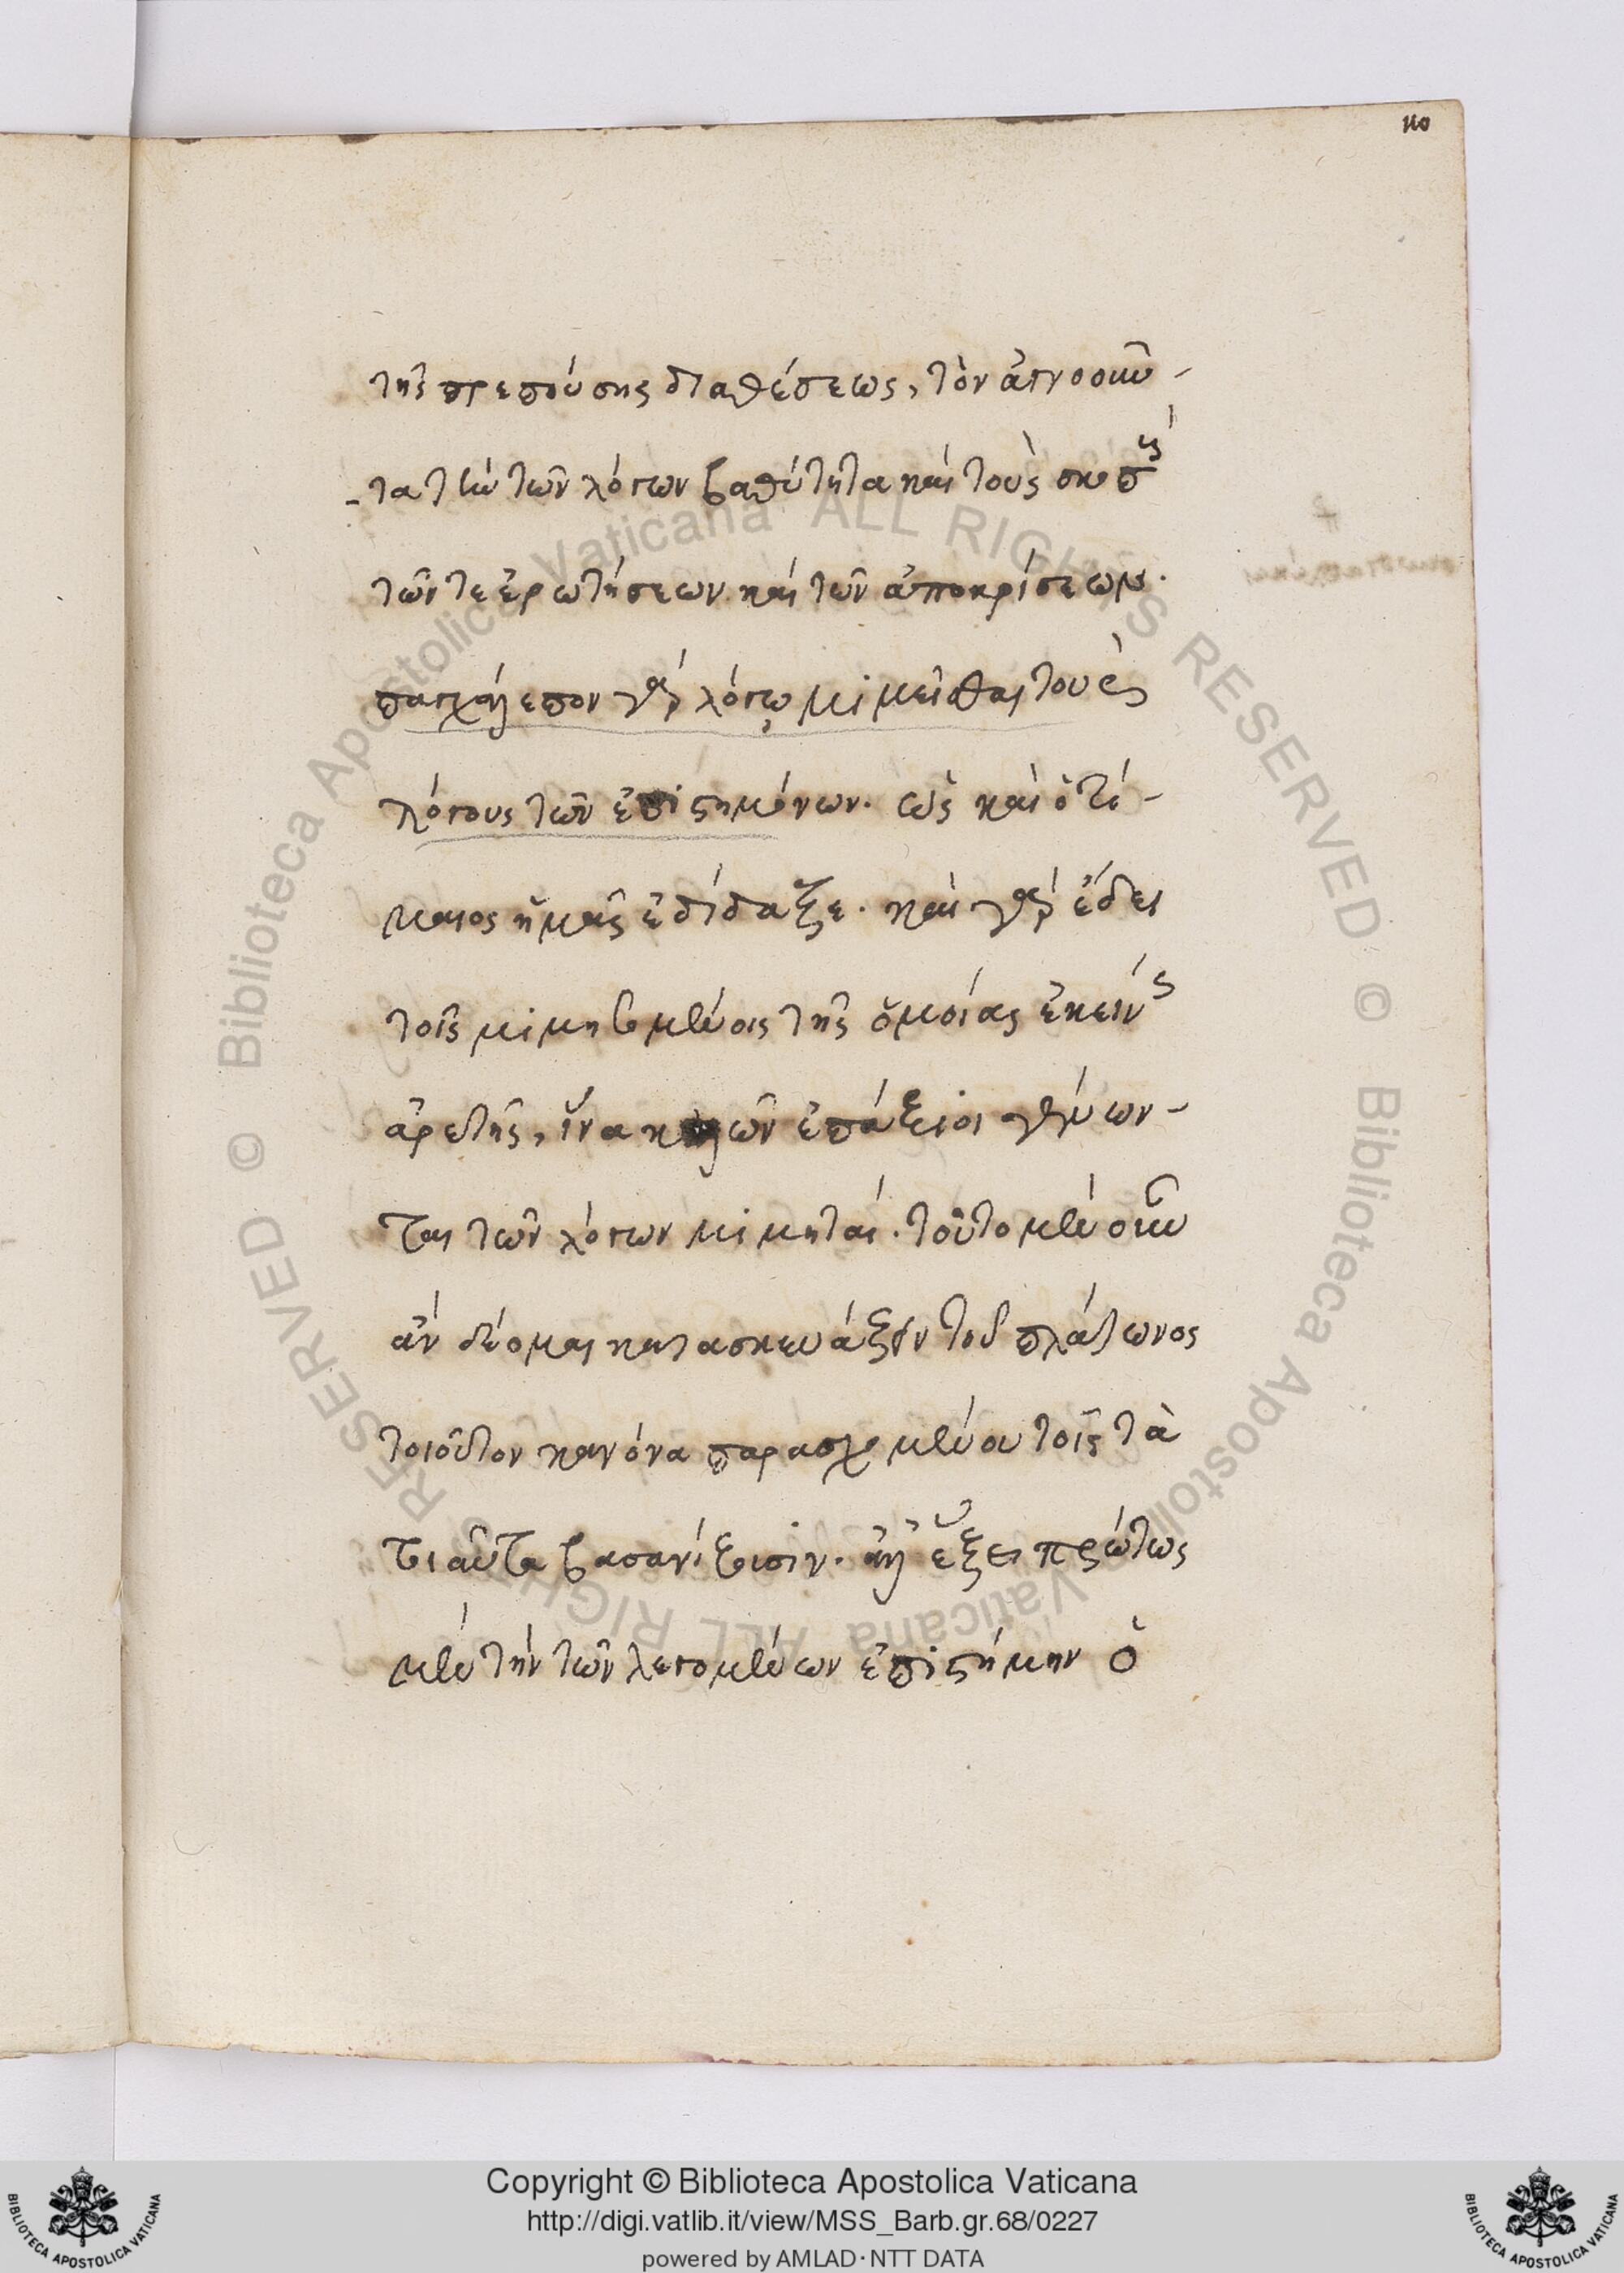 110
τῆς πρεπούσης διαθέσεως, τὸν ἀγνοοῦν-
-τα τὴν τῶν λόγων βαθύτητα καὶ τοὺς σκοποὺς
τῶν τε ἐρωτήσεων καὶ τῶν ἀποκρίσεων.
παγχάλεπον γὰρ λόγῳ μιμεῖσθαι τοὺς
λόγους τῶν ἐπιστημόνων. ὡς καὶ ὁ τί-
μαιος ἡμᾶς ἐδίδαξε. καὶ γὰρ ἔδει
τοῖς μιμησομένοις τῆς ὁμοίας ἐκείνοις
ἀρετῆς, ἵνα καὶ τῶν ἐπάξιοι γένων-
ται τῶν λόγων μιμηταί. τοῦτο μὲν οὖν
ἂν δέομαι κατασκευάζειν τοῦ πλάτωνος
τοιοῦτον κανόνα παρασχομένου τοῖς τὰ
τοιαῦτα βασανίζουσιν. ἀλλ' ἕξει πρώτως
μὲν τὴν τῶν λεγομένων ἐπιστήμην ὁ
Copyright © Biblioteca Apostolica Vaticana
http://digi.vatlib.it/view/MSS_Barb.gr.68/0227
powered by AMLAD · NTT DATA
BIBLIOTECA APOSTOLICA VATICANA
BIBLIOTECA APOSTOLICA VATICANA
© Biblioteca Apostolica Vaticana ALL RIGHTS RESERVED © Biblioteca Apostolica Vaticana ALL RIGHTS RESERVED